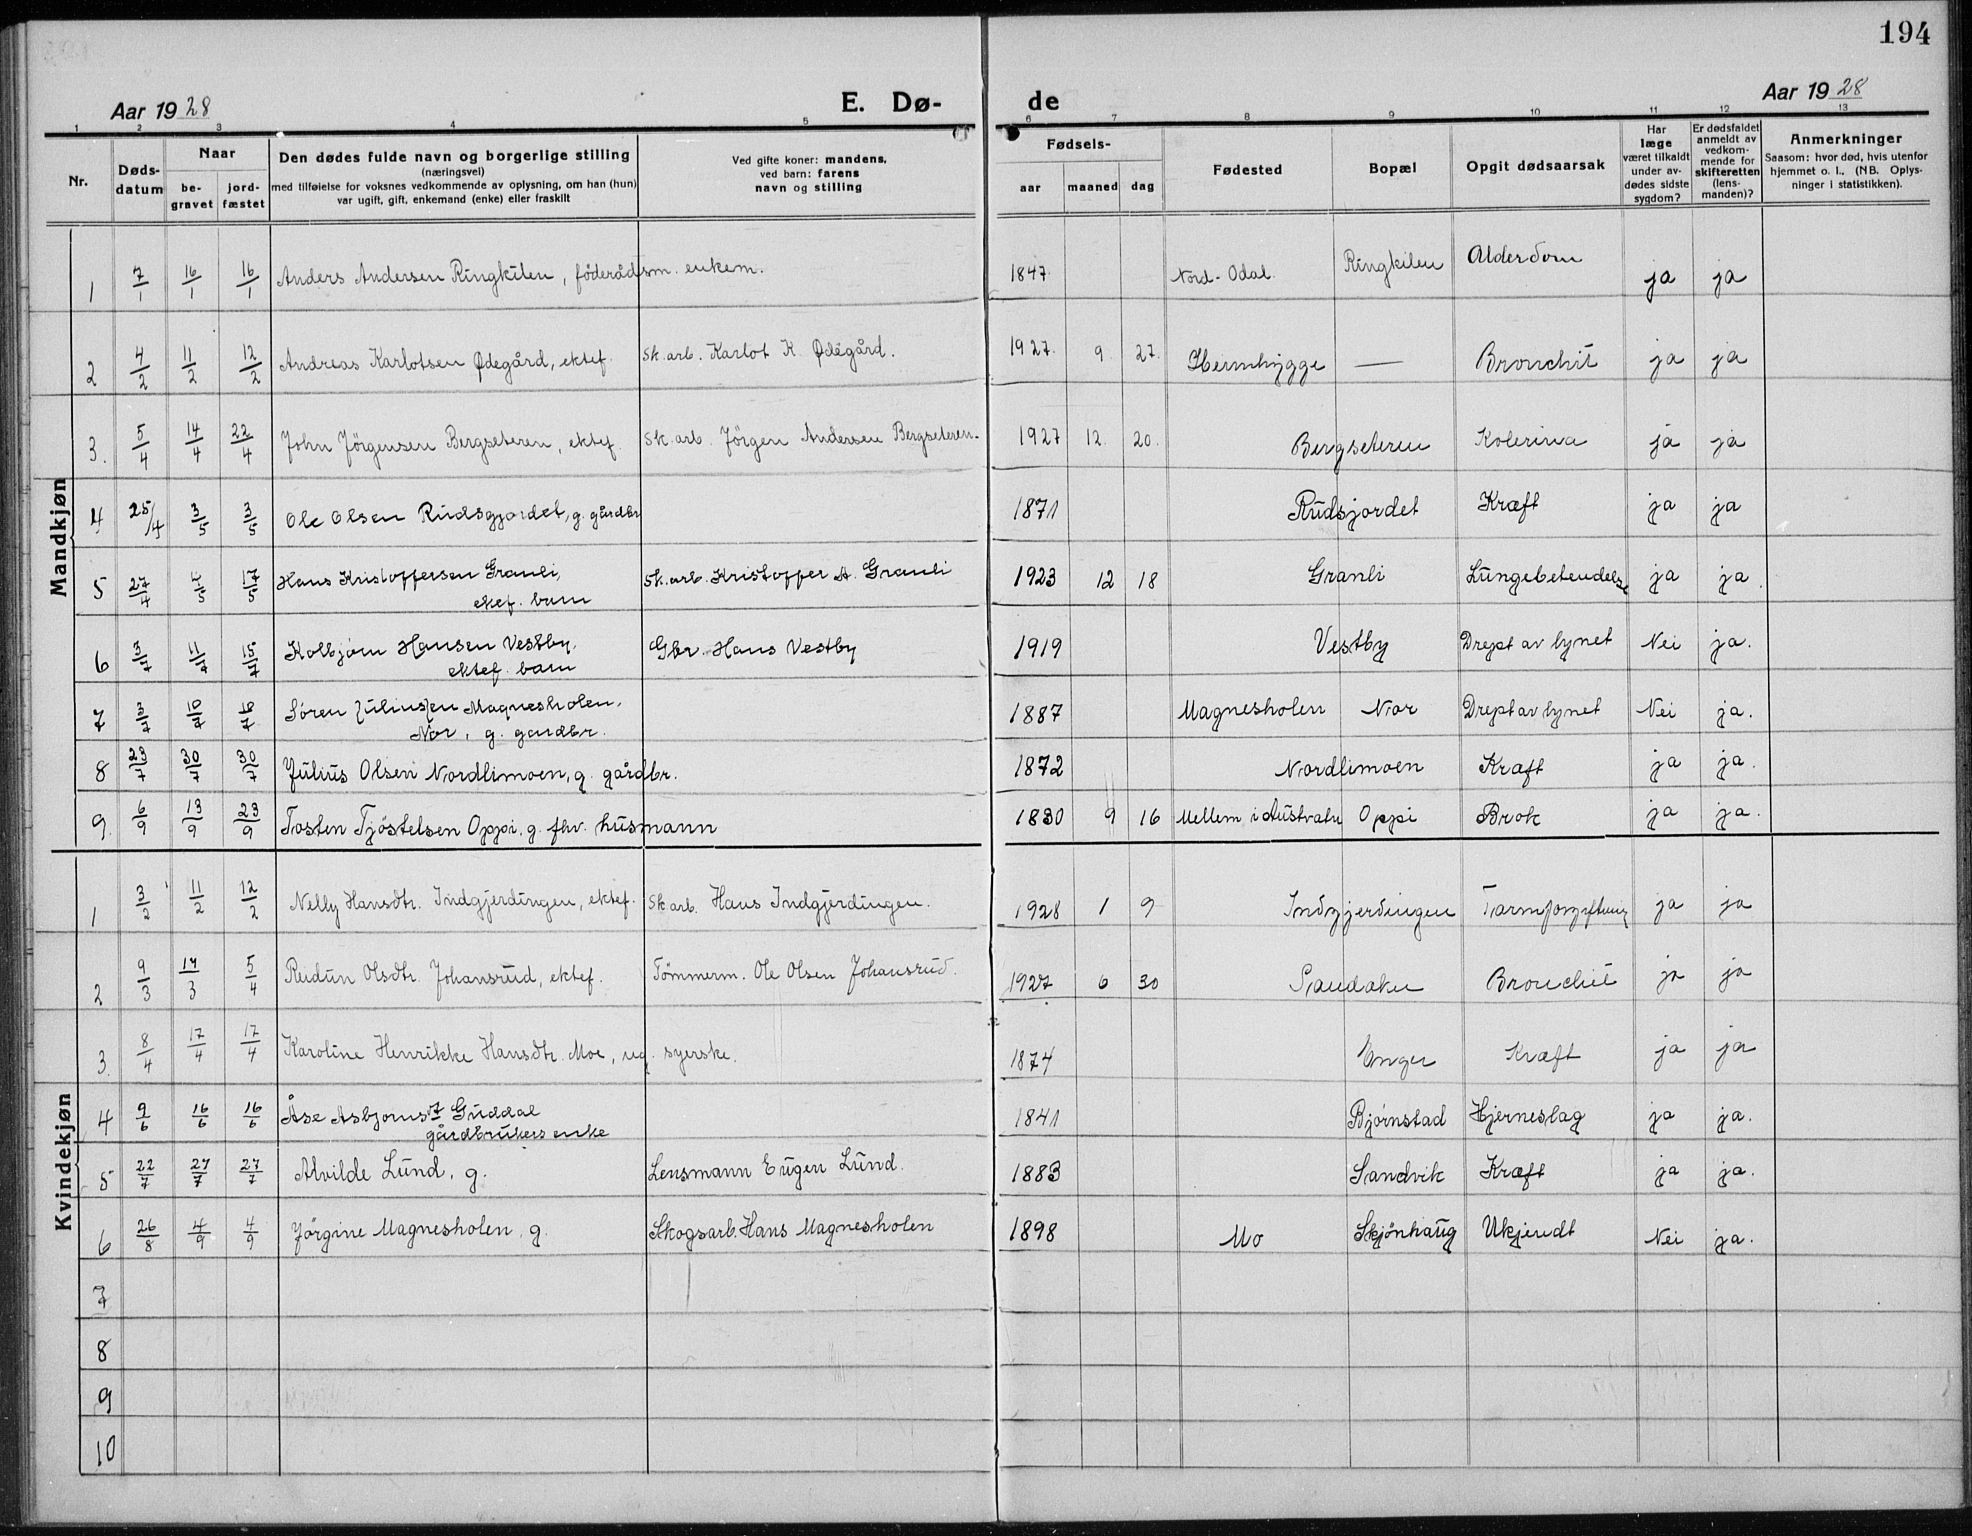 194
Aar 1928 E. Dø- de Aar 1928
1 2 3 4 5 6 7 8 9 10 11 12 13
Nr.
Døds-
datum
Naar
be-
gravet
jord-
fæstet
Den dødes fulde navn og borgerlige stilling
(næringsvei)
med tilføielse for voksnes vedkommende av oplysning, om han (hun)
var ugift, gift, enkemand (enke) eller fraskilt
Ved gifte koner: mandens,
ved barn: farens
navn og stilling
Fødsels-
aar maaned dag
Fødested
Bopæl
Opgit dødsaarsak
Har
læge
været tilkaldt
under av-
dødes sidste
sygdom?
Er dødsfaldet
anmeldt av
vedkom-
mende for
skifteretten
(lens-
manden)?
Anmerkninger
Saasom: hvor død, hvis utenfor
hjemmet o. l., (NB. Oplys-
ninger i statistikken).
Mandkjøn
1 7/1 16/1 16/1 Anders Andersen Ringkilen, föderådsm. enkem. 1847 Nord-Odal. Ringkilen Alderdom ja ja
2 4/2 11/2 12/2 Andreas Karlotsen Ødegård, ektef. Sk. arb. Karlot K. Ødegård. 1927. 9. 27. Heimhygge — Bronchit ja ja
3. 5/4 14/4 22/4 John Jörgensen Bergseteren, ektef. Sk. arb. Jörgen Andersen Bergseteren. 1927 12. 20. Bergseteren Kolerina ja ja
4 25/4 3/5 3/5 Ole Olsen Rudsgjordet, g. gårdbr 1871 Rudsjordet Kræft ja ja
5 27/4 4/5 17/5 Hans Kristoffersen Granli, Sk. arb. Kristoffer A. Granli 1923 12 18 Granli Lungebetendelse ja ja.
ektef. barn
6 3/7 11/7 15/7 Kolbjørn Hansen Vestby, Gbr. Hans Vestby 1919 Vestby Drept av lynet Nei ja.
ektef. barn
7 3/7 10/7 /7 Søren Juliussen Magnesholen, 1887 Magnesholen Nor Drept av lynet Nei ja.
Nor, g. gardbr.
8 23/7 30/7 30/7 Julius Olsen Nordlimoen, g. gårdbr. 1872 Nordlimoen Kræft ja ja.
9. 6/9 13/9 23/9 Tosten Tjöstelsen Oppi, g. fhv. husmann 1830 9 16 Mellem i Austvatn Oppi Brok ja ja.
Kvindekjøn
1 3/2 11/2 12/2 Nelly Hansdtr. Indgjerdingen, ektef. Sk arb. Hans Indgjerdingen. 1928 1 9 Indgjerdingen Tarmforgiftning ja ja
2 9/3 14/3 5/4 Reidun Olsdtr. Johansrud, ektef. Tömmerm. Ole Olsen Johansrud. 1927 6 30 Sandaker Bronchit ja ja
3. 8/4 17/4 17/4 Karoline Henrikke Hansdtr. Moe, ug. syerske. 1874 Enger Kræft ja ja
4 9/6 16/6 16/6 Åse Asbjørnsd. Guddal 1841 Bjørnstad Hjerneslag ja ja.
gårdbrukers enke
5 22/7 27/7 27/7 Alvilde Lund, g. Lensmann Eugen Lund. 1883 Sandvik Kræft ja ja.
6 26/8 4/9 4/9 Jørgine Magnesholen, g. Skogsarb. Hans Magnesholen 1898 Mo Skjønhaug Ukjendt Nei ja.
7
8
9
10